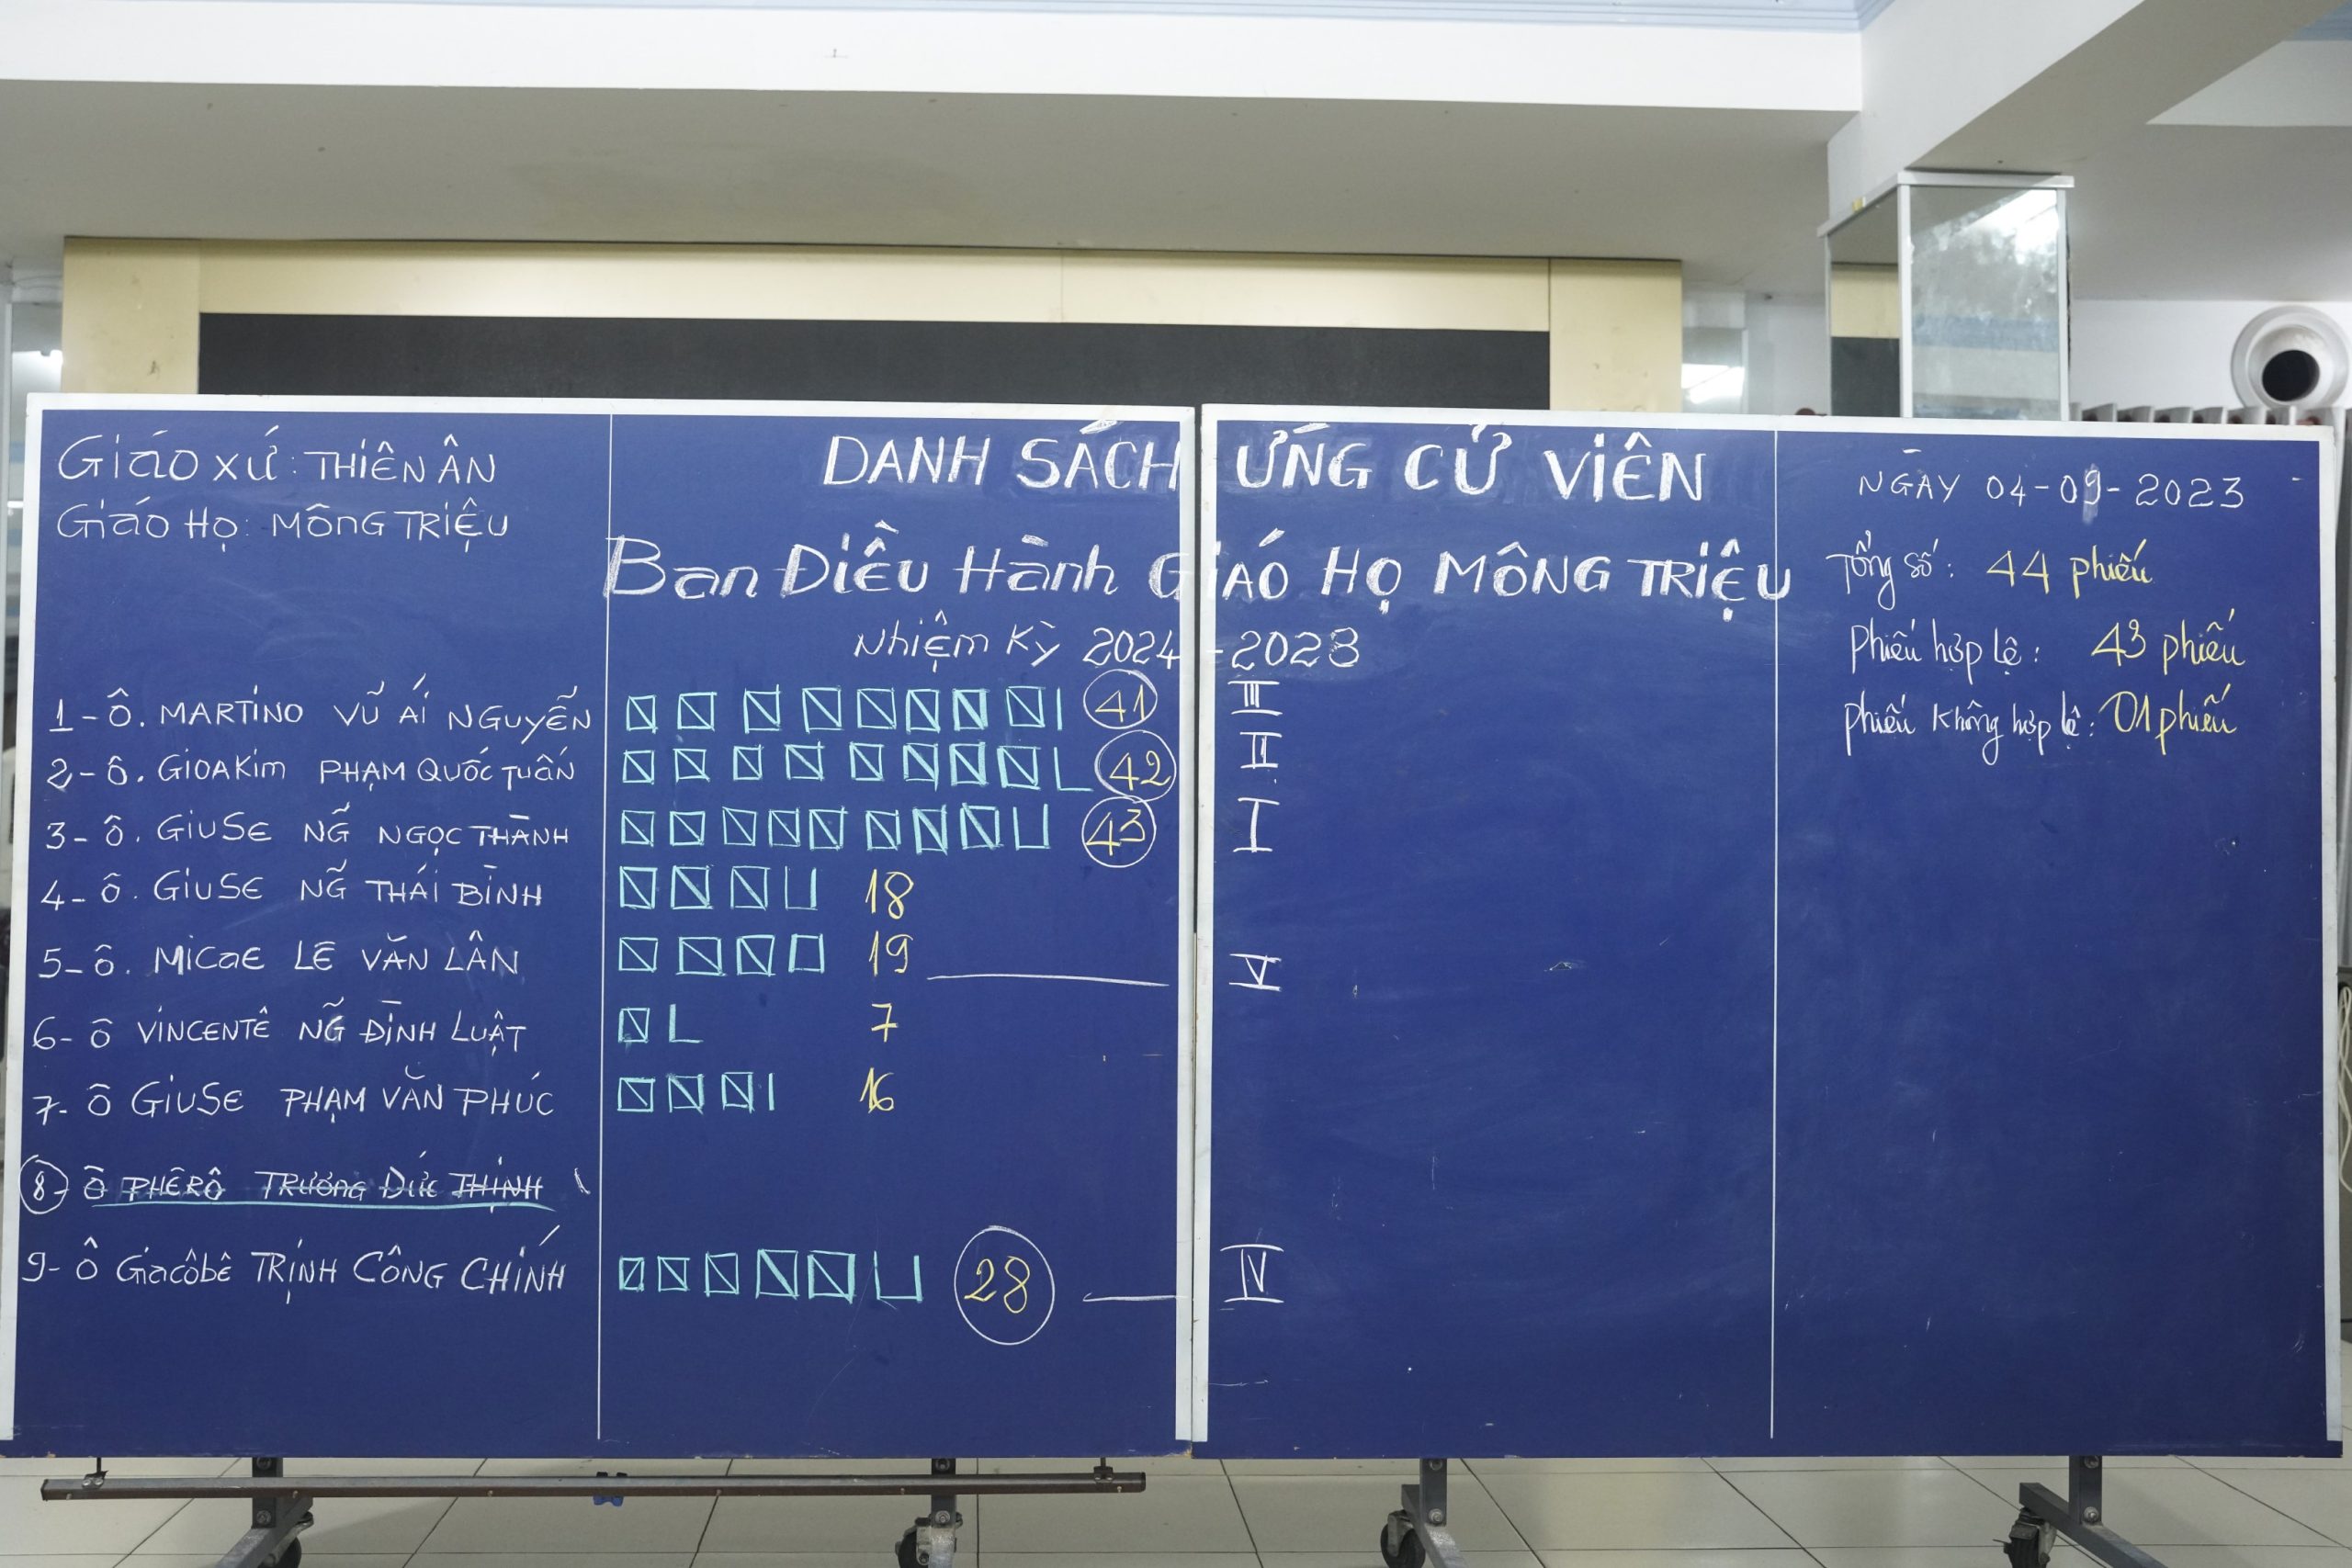 Giáo xứ: THIÊN ÂN
Giáo Họ: MÔNG TRIỆU
DANH SÁCH ỨNG CỬ VIÊN
Ban Điều Hành GIÁO HỌ MÔNG TRIỆU
Nhiệm Kỳ 2024-2028
NGÀY 04-09-2023
Tổng số: 44 phiếu
Phiếu hợp lệ: 43 phiếu
phiếu không hợp lệ: 01 phiếu
1-Ô. MARTINO VŨ ÁI NGUYỄN 41 III
2-Ô. GIOAKIM PHẠM QUỐC TUẤN 42 II
3-Ô. GIUSE NG̃ NGỌC THÀNH 43 I
4-Ô. GIUSE NG̃ THÁI BÌNH 18
5-Ô. MICAE LÊ VĂN LÂN 19 V
6-Ô VINCENTÊ NG̃ ĐÌNH LUẬT 7
7-Ô GIUSE PHẠM VĂN PHÚC 16
8-Ô PHÊRÔ TRƯƠNG ĐỨC THỊNH
9-Ô Giacôbê TRỊNH CÔNG CHÍNH 28 IV